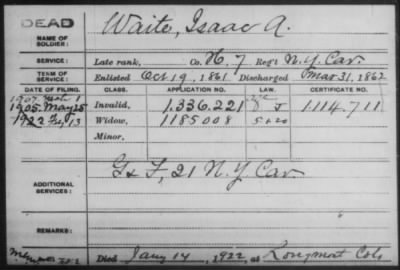 DEAD
NAME OF SOLDIER: Waite, Isaac A.
SERVICE: Late rank, Co. H, 7 Reg't N.Y. Cav.
TERM OF SERVICE: Enlisted Oct 19, 1861 Discharged Mar 31, 1862
DATE OF FILING. CLASS. APPLICATION NO. LAW. CERTIFICATE NO.
1907
1905 May 25 Invalid, 1.336.221 1.114.711
1922 13 Widow, 1185008
Minor,
ADDITIONAL SERVICES: G & F, 21 N.Y. Cav.
REMARKS:
Died Jany 14, 1922, at Longmont Colo